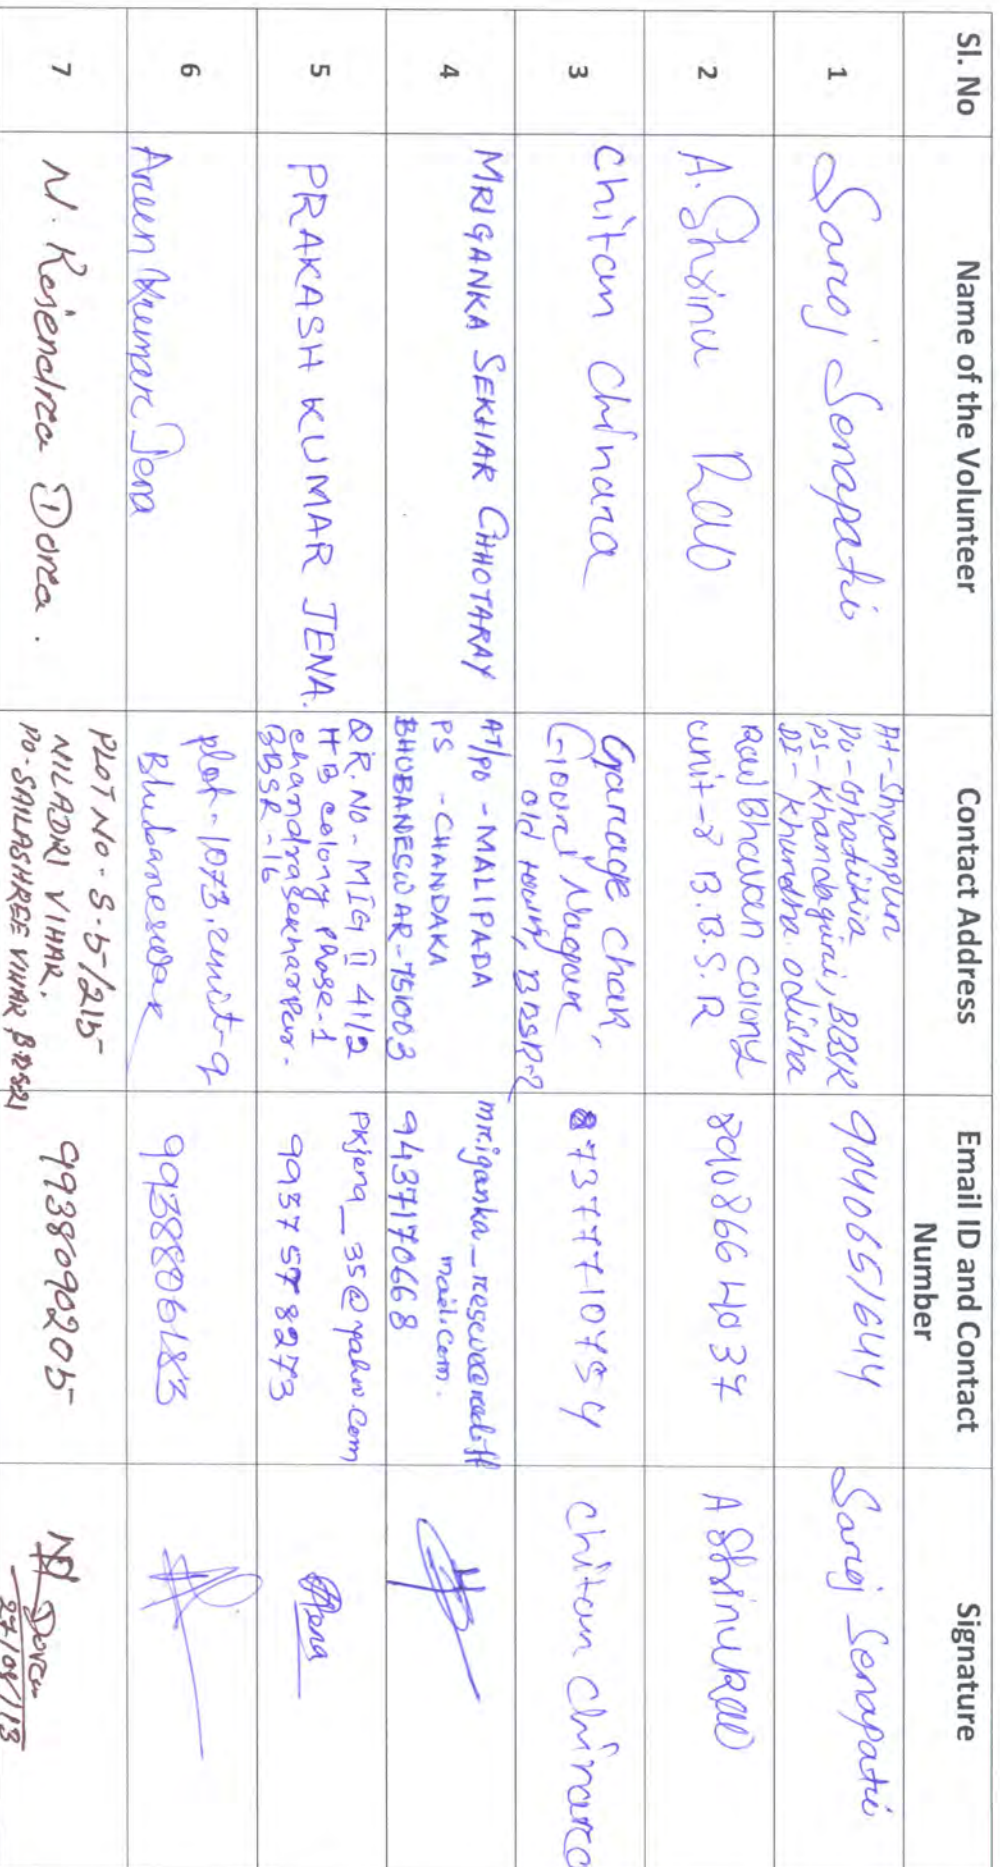 Sl. No
Name of the Volunteer
Contact Address
Email ID and Contact
Number
Signature
1
Saroj Senapati
At-Shyampur
Po-Ghatikia
PS-Khandagiri, BBSR
DI-Khurdha. odisha
9040651644
Saroj Senapati
2
A. Shrinu Rao
Raj Bhawan colony
unit-8 B.B.S.R
A Shrinu Rao
3
Chitan Chinara
Garage Chak,
Gouri Nagar
old town, BBSR-2
Chitan Chinara
4
MRIGANKA SEKHAR CHHOTARAY
AT/PO - MALIPADA
PS - CHANDAKA
BHUBANESWAR-751003
mail.com.
9437170668
5
PRAKASH KUMAR JENA.
QR. NO - MIG II 41/2
HB colony Phase-1
chandrasekharpur-
BBSR-16
PKjena_35@yahoo.com
9937578273
Jena
6
Kumar Jena
plot-1073, unit-9
Bhubaneswar
7
N. Rajendra Dora.
PLOT NO - S-5/215
NILADRI VIHAR,
PO-SAILASHREE VIHAR,
9938090205
Dora